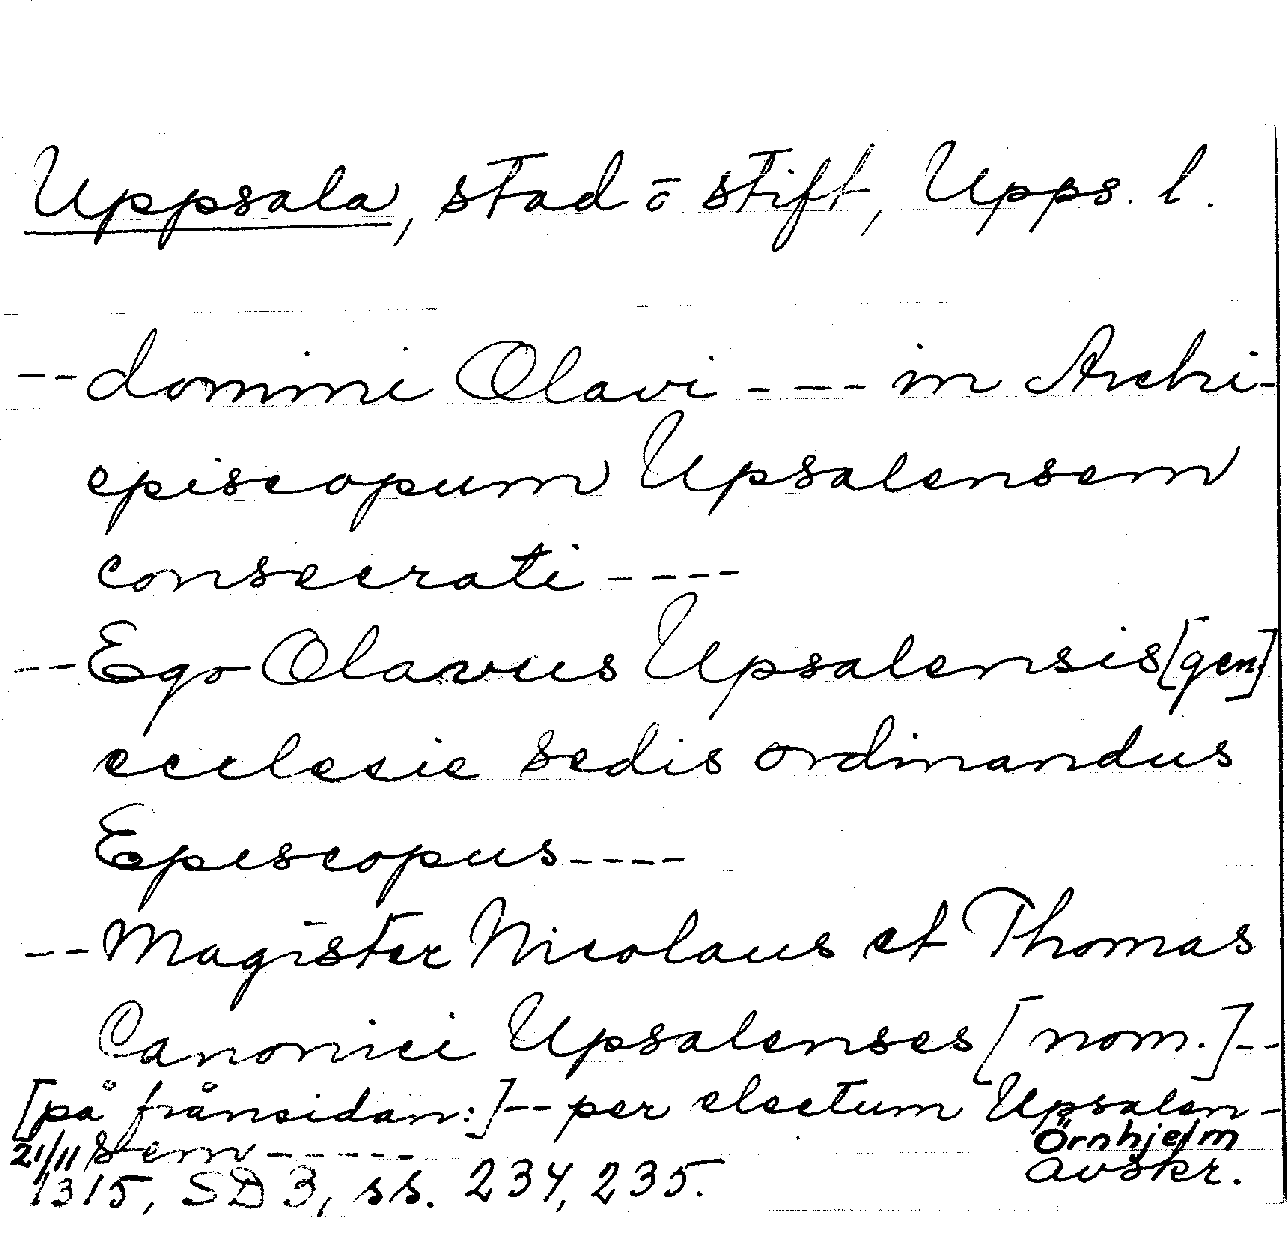 Uppsala, stad o stift, Upps. l.
-- domini Olavi ---- in Archi-
episcopum Upsalensem
consecrati ----
-- Ego Olavus Upsalensis [gen]
ecclesie sedis ordinandus
Episcopus ----
-- Magister Nicolaus et Thomas
Canonici Upsalenses [nom.] --
[på frånsidan:] -- per electum Upsalen-
21/11 sem ------ Örnhjelm
1315, SD 3, ss. 234, 235. avskr.